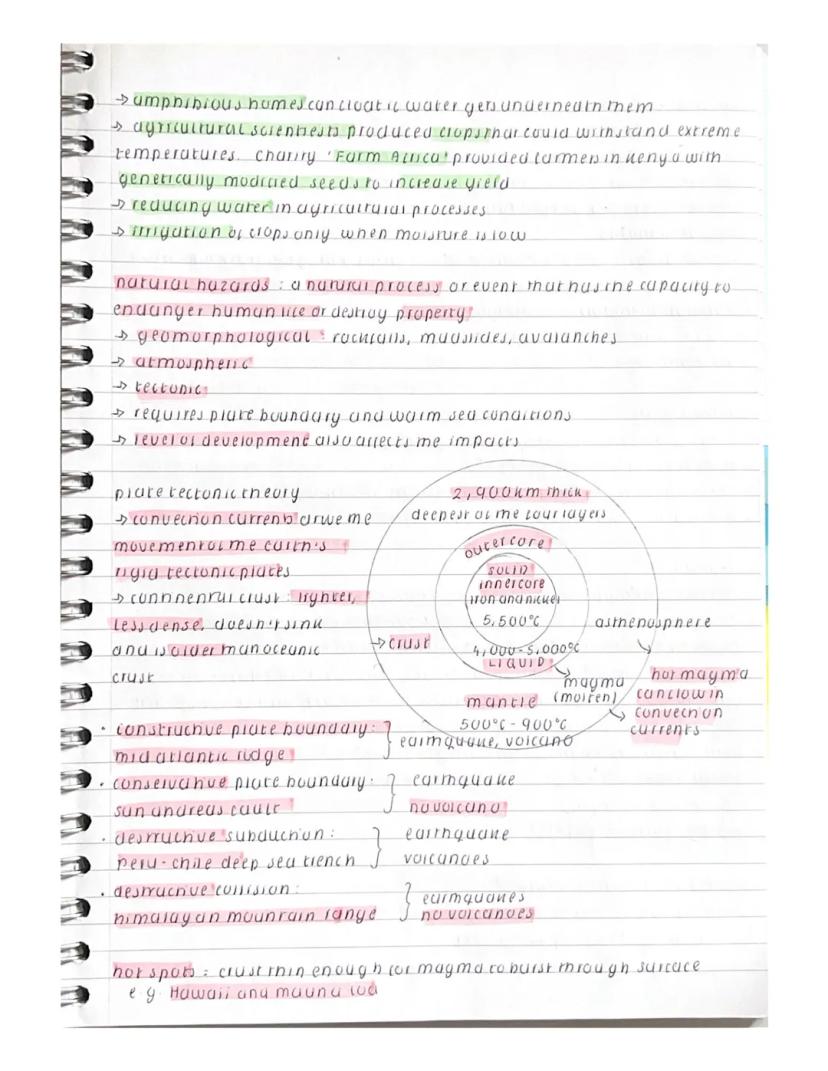 → amphibious homes can float if water gets underneath them
→ agricultural scientists produced crops that could withstand extreme
temperatures. charity 'Farm Africa' provided farmers in Kenya with
genetically modified seeds to increase yield
→ reducing water in agricultural processes
→ irrigation of crops only when moisture is low
natural hazards : a natural process or event that has the capacity to
endanger human life or destroy property
→ geomorphological : rockfalls, mudslides, avalanches
→ atmospheric
→ tectonic
→ requires plate boundary and warm sea conditions
→ level of development also affects the impacts
plate tectonic theory
→ convection currents drive the
movement of the earth's
rigid tectonic plates
→ continental crust : lighter,
less dense, doesn't sink
and is older than oceanic
crust
2,900km thick
deepest of the four layers
outer core
SOLID
inner core
iron and nickel
5,500°C
4,000-5,000°C
LIQUID
→ crust
asthenosphere
magma
(molten)
hot magma
can flow in
convection
currents
mantle
500°C - 900°C
• constructive plate boundary:
mid atlantic ridge
earthquake, volcano
• conservative plate boundary:
san andreas fault
earthquake
no volcano
• destructive subduction:
peru-chile deep sea trench
earthquake
volcanoes
• destructive collision:
himalayan mountain range
earthquakes
no volcanoes
hot spots : crust thin enough for magma to burst through surface
e.g. Hawaii and mauna loa